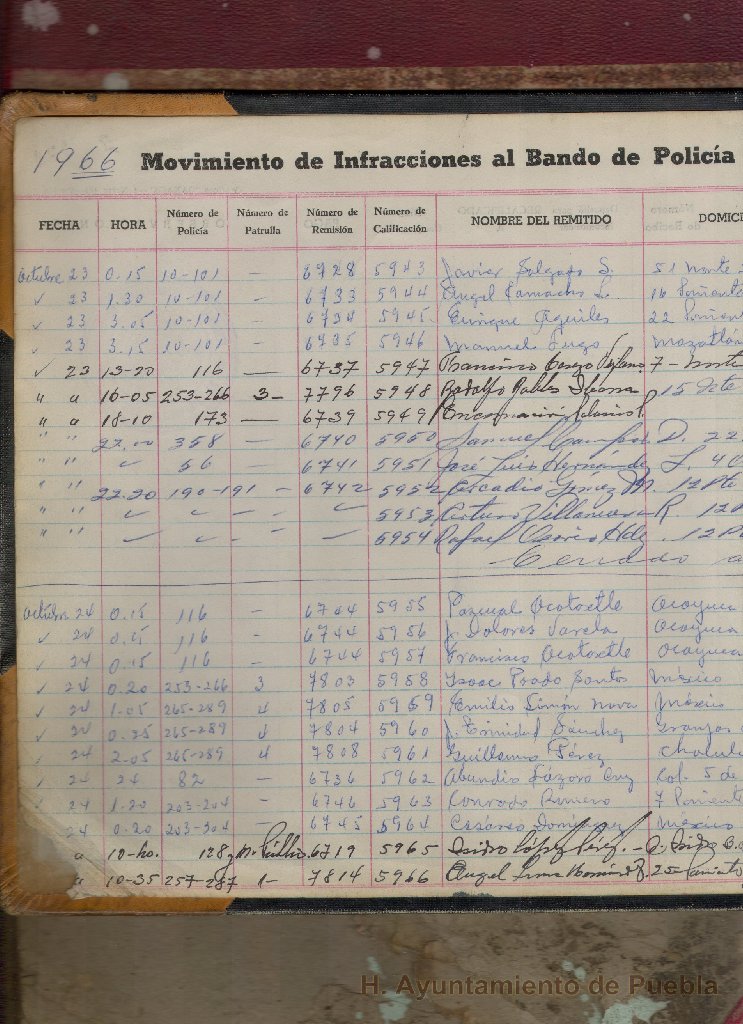 1966 Movimiento de Infracciones al Bando de Policía
FECHA HORA Número de Policía Número de Patrulla Número de Remisión Número de Calificación NOMBRE DEL REMITIDO DOMICI
Octubre 23 0.15 10-101 — 6728 5943 Javier S. 51 Norte
✓ 23 1.30 10-101 — 6733 5944 Angel Camacho L. 16 Poniente
✓ 23 3.05 10-101 — 6734 5945 Enrique Aquiles 22 Poniente
✓ 23 3.15 10-101 — 6735 5946 Manuel Lugo Mazatlán
✓ 23 13-20 116 — 6737 5947 Francisco 7- Norte
" a 16-05 253-266 3- 7796 5948 Rodolfo Robles 15 Ote
" a 18-10 173 — 6739 5949 Encarnación
" " 22.00 358 — 6740 5950 Samuel Campos D. 22
" " ✓ 56 — 6741 5951 José Luis Hernández L. 40
" " 22.20 190-191 - 6742 5952 M. 12 Pte
" " ✓ ✓ - ✓ 5953 Arturo Villanueva R 12
" " ✓ ✓ - — 5954 Rafael Hdz. 12
Cerrado a
Octubre 24 0.15 116 — 6744 5955 Pascual Ocotoxtle Ocoyuca
✓ 24 0.15 116 — 6744 5956 J. Dolores Varela Ocoyuca
24 0.15 116 — 6744 5957 Francisco Ocotoxtle Ocoyuca
✓ 24 0.20 253-266 3 7803 5958 Isaac Prado Santos México
✓ 24 1.05 265-289 4 7805 5959 Emilio Simón Nova México
✓ 24 0.25 265-289 4 7804 5960 J. Trinidad Sánchez Granjas
✓ 24 2.05 265-289 4 7808 5961 Guillermo Pérez Cholula
✓ 24 24 82 — 6736 5962 Abundio Lázaro Cruz Col. 5 de
✓ 24 1.20 203-204 — 6746 5963 Conrado Romero 7 Poniente
24 0.20 203-204 — 6745 5964 Cesáreo Domínguez México
a 10-ho. 128 6719 5965 Isidro López Pérez.-
a 10-35 257-287 1- 7814 5966 Angel Lima 25-Poniente
H. Ayuntamiento de Puebla